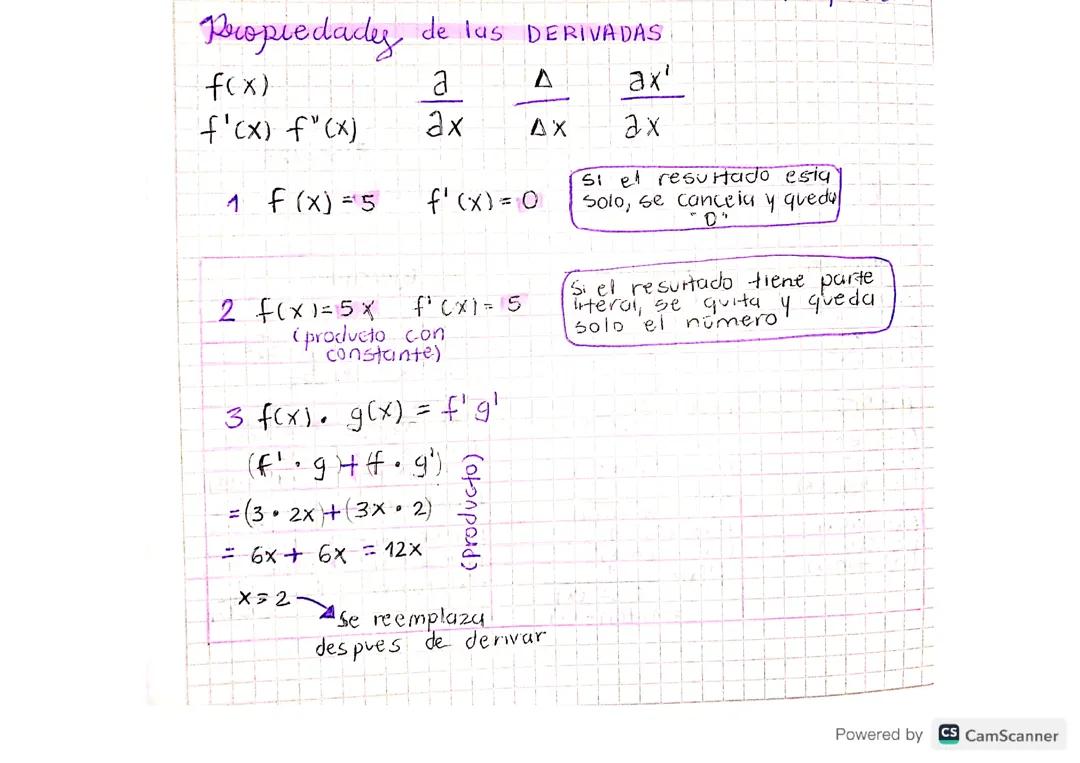 Propiedades de las DERIVADAS
f(x) ∂/∂x Δ/Δx ∂x'/∂x
f'(x) f"(x)
1 f(x) = 5 f'(x) = 0
Si el resultado esta
solo, se cancela y queda
"0"
2 f(x) = 5x f'(x) = 5
(producto con
constante)
Si el resultado tiene parte
literal, se quita y queda
solo el número
3 f(x) . g(x) = f' g'
(f' · g) + (f · g')
= (3 · 2x) + (3x · 2)
= 6x + 6x = 12x
(producto)
x = 2
Se reemplaza
despues de derivar
Powered by CS CamScanner